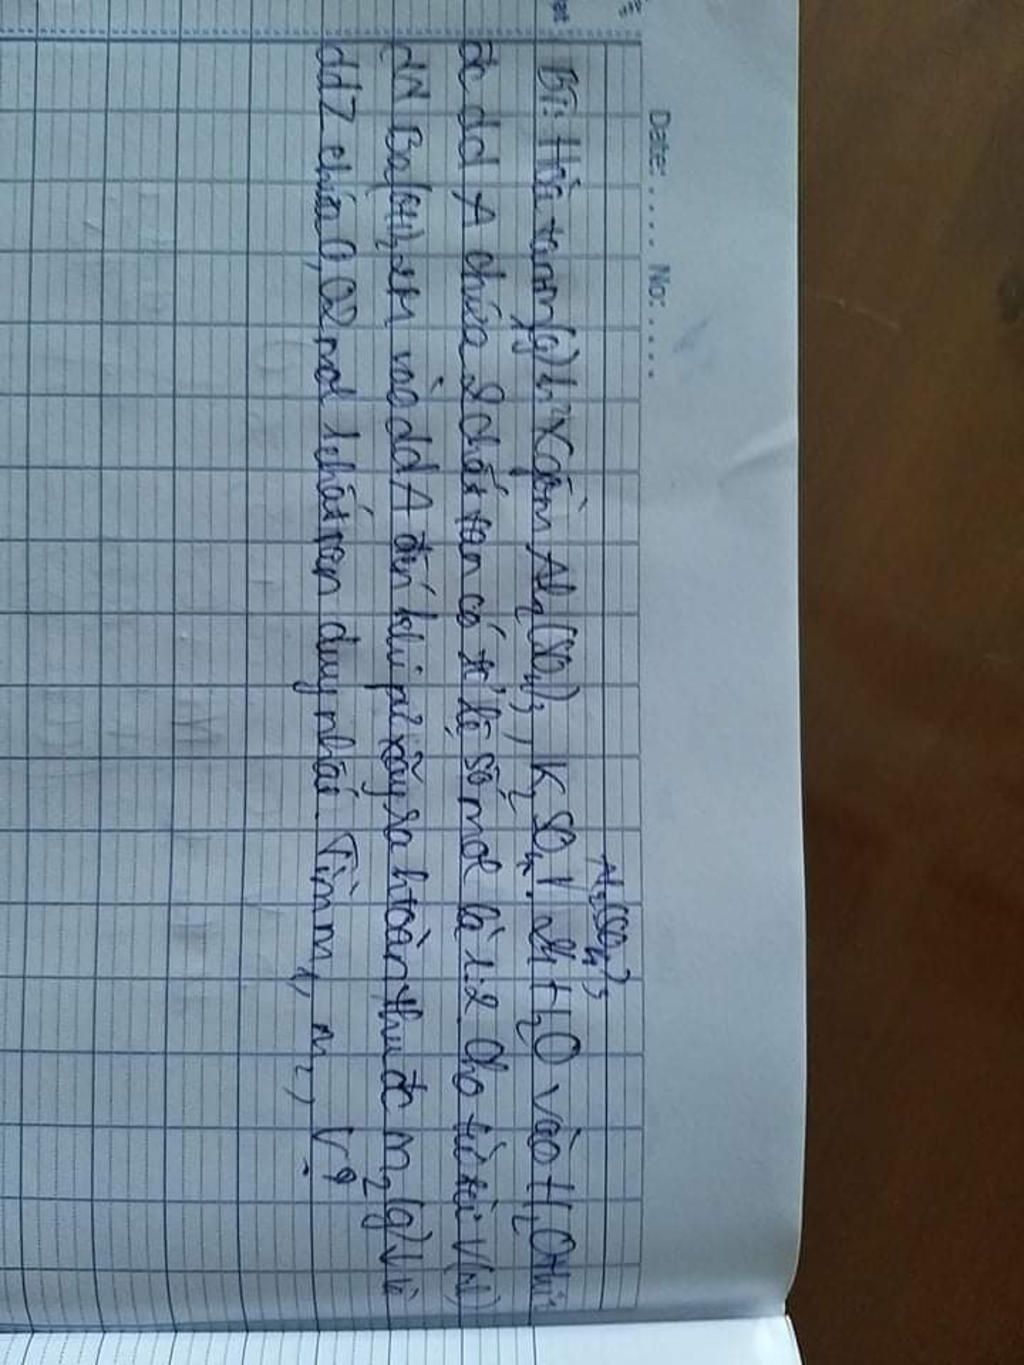 Date: ..... No: .....
Al₂(SO₄)₃
B1: Hòa tan m₁(g) h² X gồm Al₂(SO₄)₃, K₂SO₄. 24H₂O vào H₂O thu
đc dd A chứa 2 chất tan có tỉ lệ số mol là 1:2. Cho từ từ V(l)
dd Ba(OH)₂ 2M vào dd A đến khi pứ xảy ra htoàn thu đc m₂(g)↓ và
ddZ chứa 0,02 mol 1 chất tan duy nhất. Tìm m₁, m₂, V?